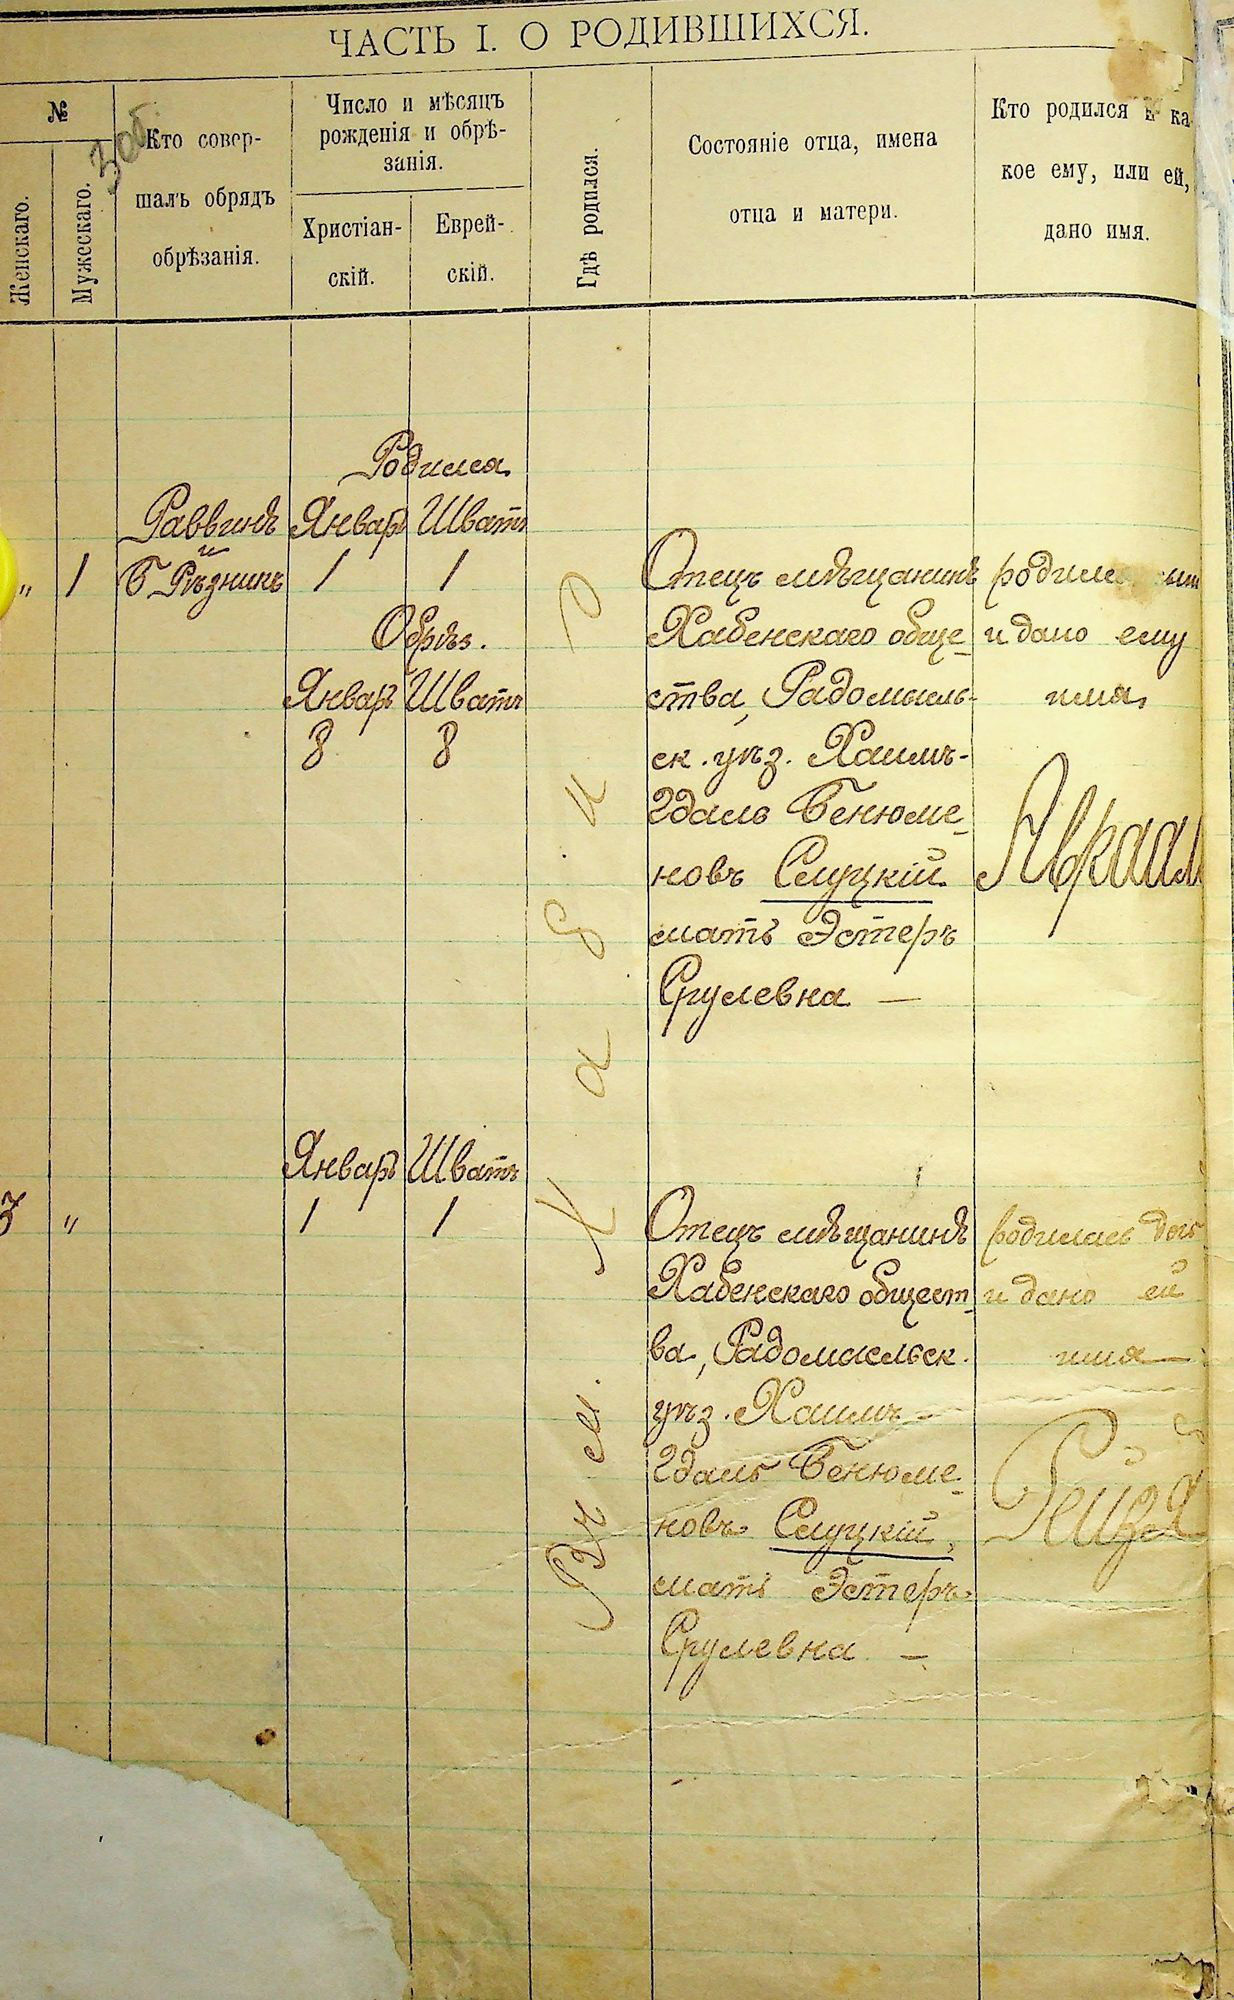 ЧАСТЬ I. О РОДИВШИХСЯ.
№
Женскаго.
Мужескаго.
30б.
Кто совер-
шалъ обрядъ
обрѣзанія.
Число и мѣсяцъ
рожденія и обрѣ-
занія.
Христіан-
скій.
Еврей-
скій.
Гдѣ родился.
Состояніе отца, имена
отца и матери.
Кто родился и ка
кое ему, или ей,
дано имя.
"
1
Раввинъ
и
Б Рѣзникъ
Родился
Январь Шватъ
1 1
Обрѣз.
Январь Шватъ
8 8
Отецъ мѣщанинъ
Хабенскаго обще-
ства, Радомысль-
ск. уѣз. Хаимъ-
Гдаль Бенюме-
новъ Слуцкій
мать Эстеръ
Срулевна —
родился сын
и дано ему
имя
Авраам
3
"
Январь Шватъ
1 1
Отецъ мѣщанинъ
Хабенскаго общест-
ва, Радомысльск.
уѣз. Хаимъ-
Гдаль Бенюме-
новъ Слуцкій,
мать Эстеръ
Срулевна —
родилась доч
и дано ей
имя
Рейзя
м. Хабно